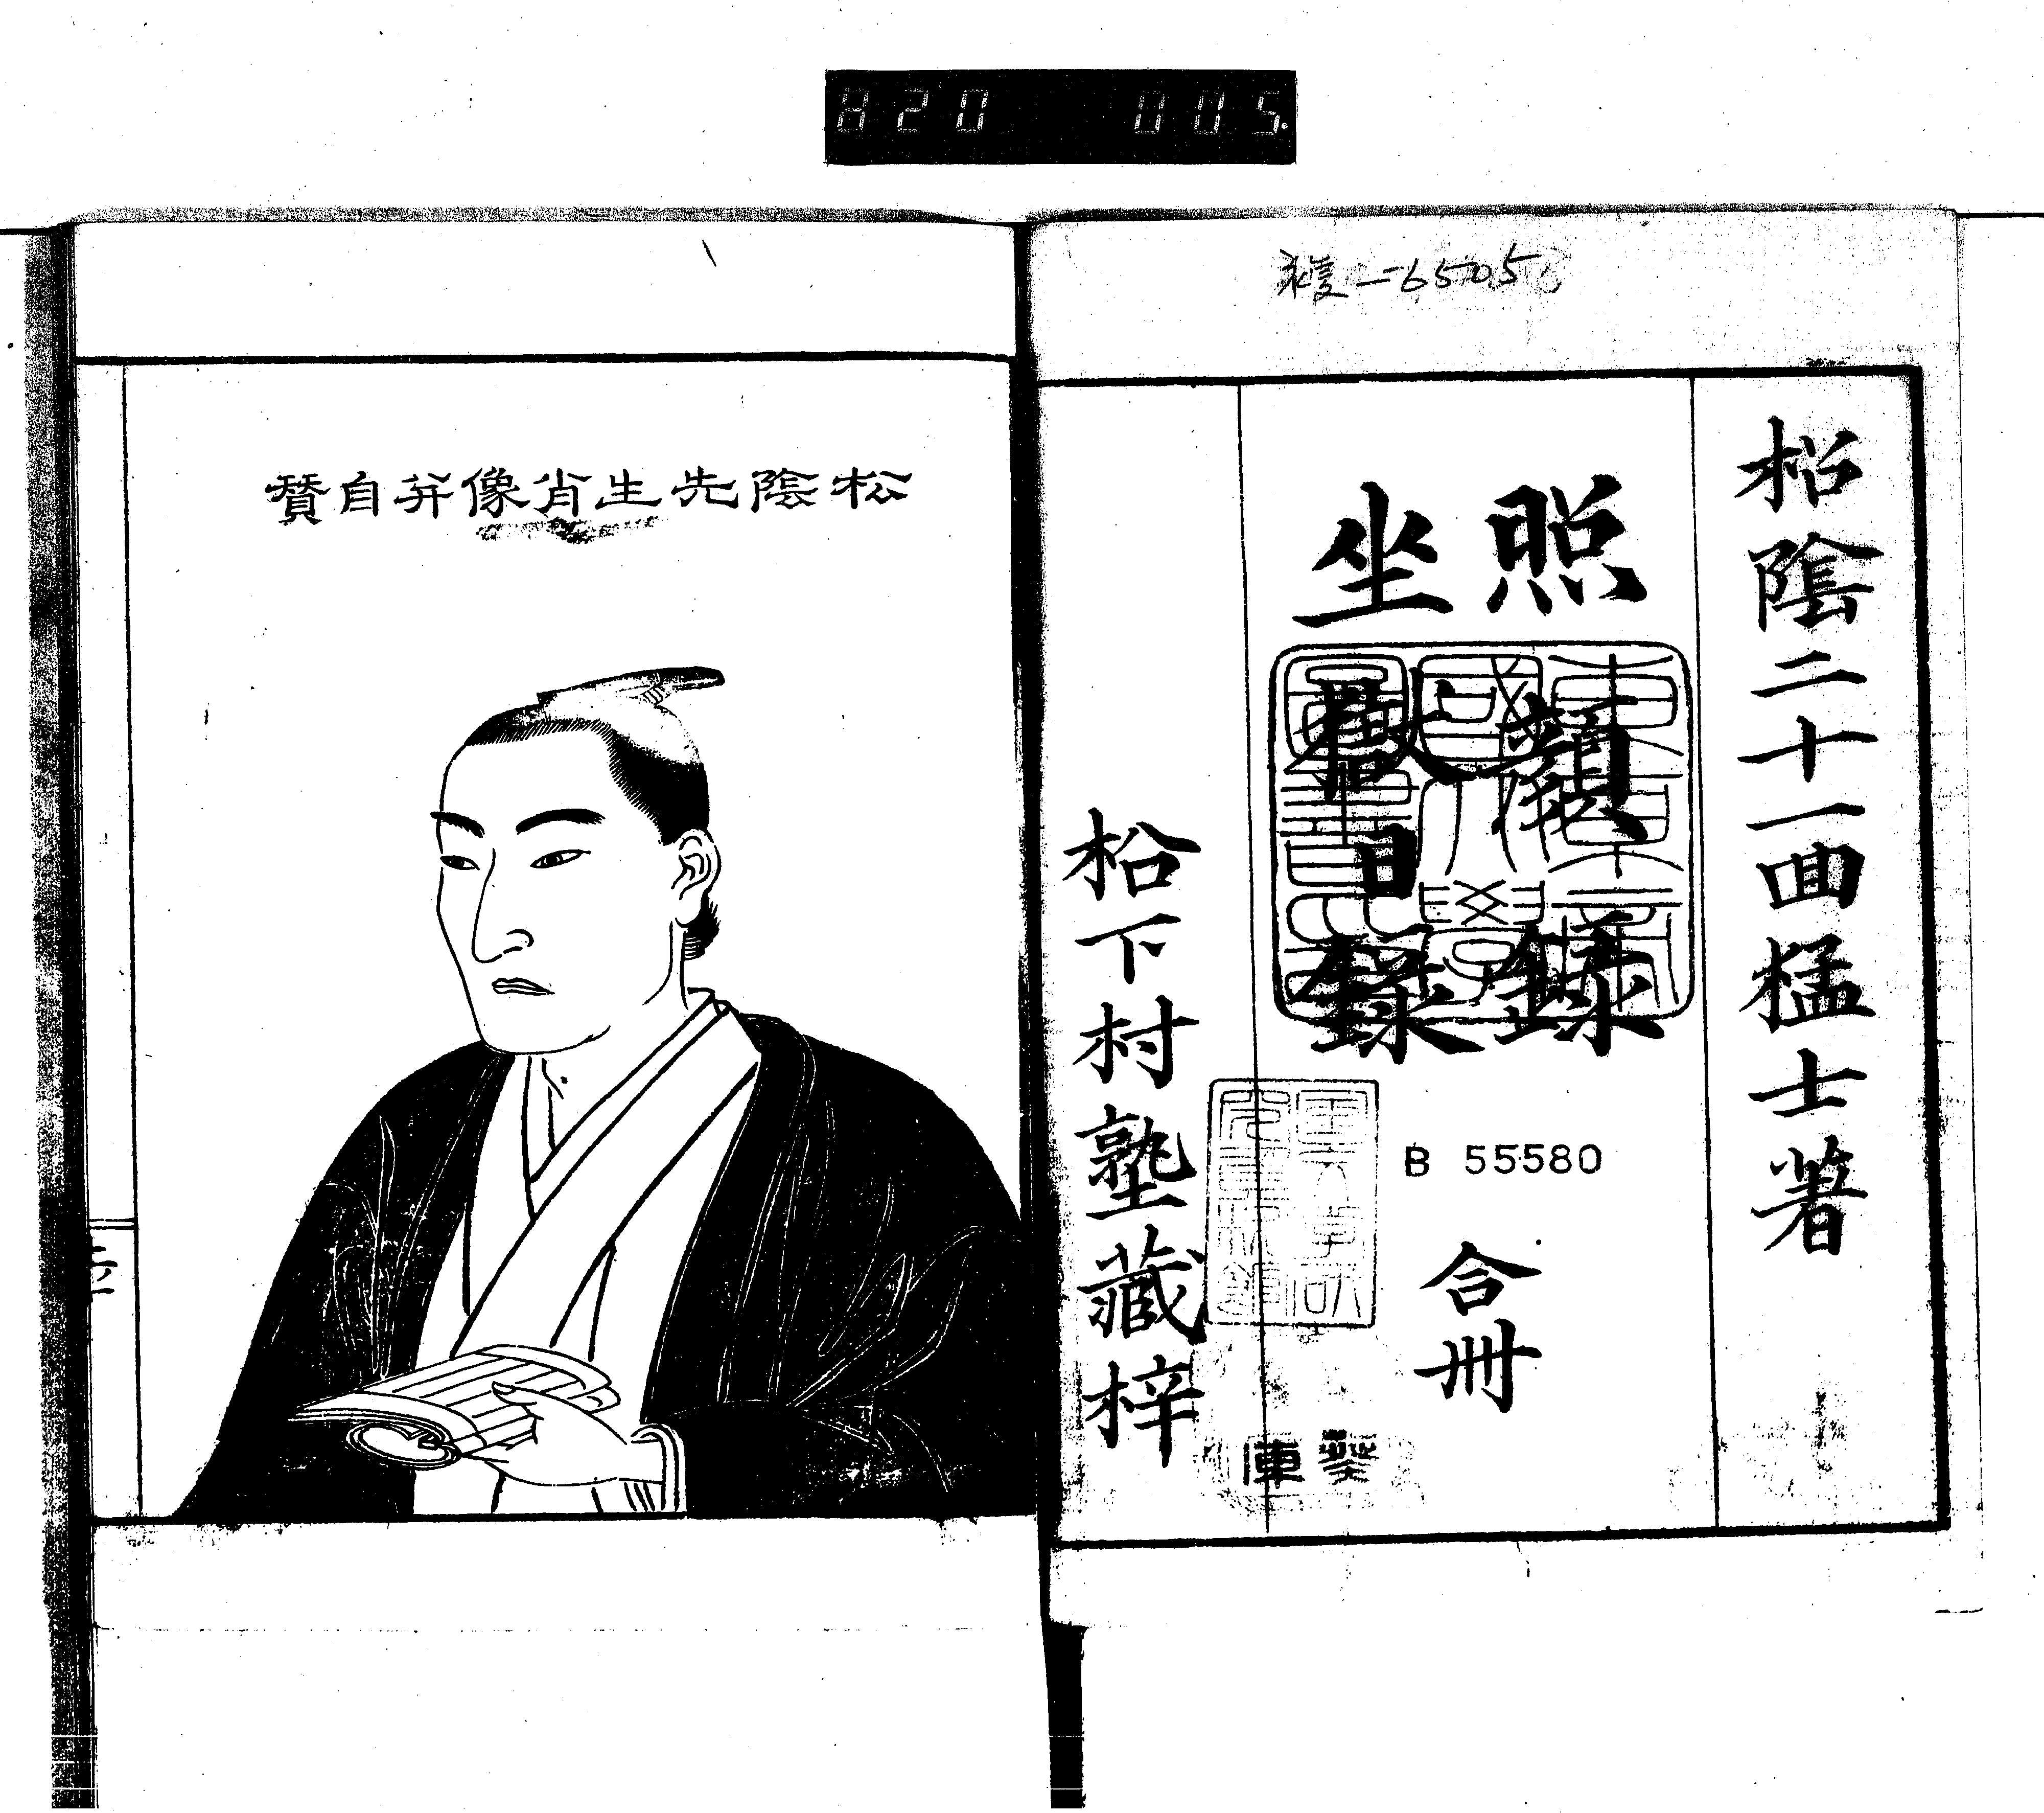 820 005.
-6505
松陰二十一回猛士著
照顔錄
坐獄日錄
合冊
B 55580
松下村塾藏梓
松陰先生肖像并自贊